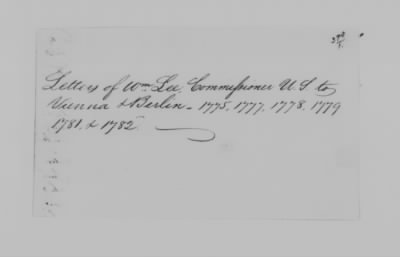 Letters of Wm Lee, Commissioner U. S to
Vienna & Berlin - 1775, 1777, 1778, 1779
1781, & 1782